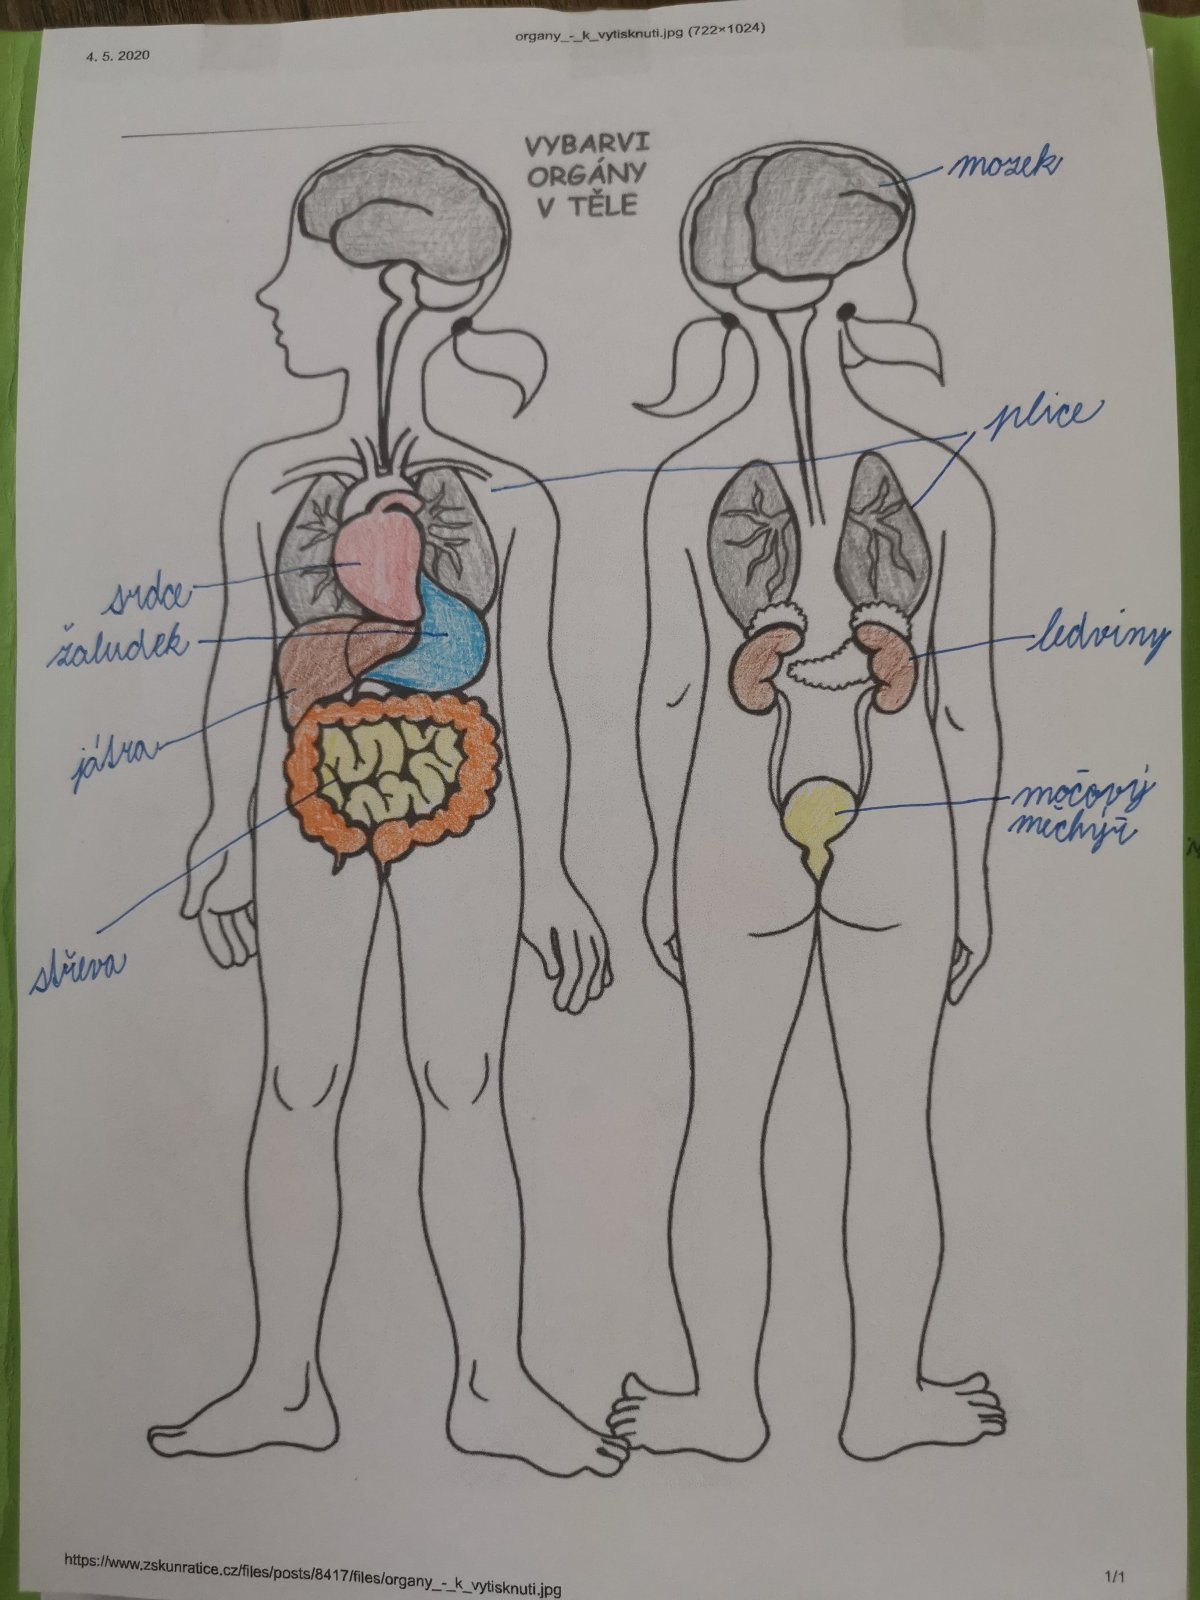 organy_-_k_vytisknuti.jpg (722×1024)
4. 5. 2020
VYBARVI
ORGÁNY
V TĚLE
mozek
plice
srdce
žaludek
ledviny
játra
močový
měchýř
střeva
https://www.zskunratice.cz/files/posts/8417/files/organy_-_k_vytisknuti.jpg
1/1